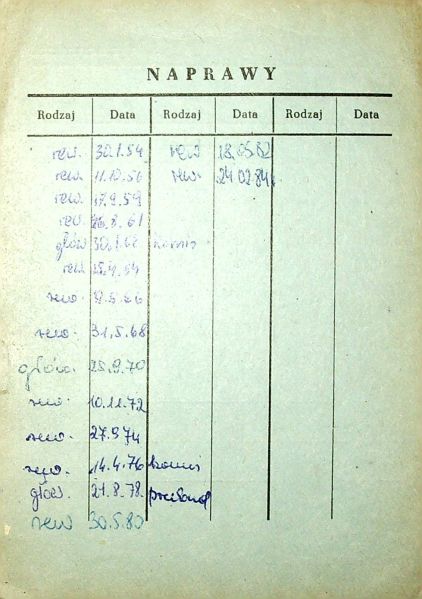 NAPRAWY
Rodzaj Data Rodzaj Data Rodzaj Data
rew. 30.1.54 rew 18.05.82
rew. 11.10.56 rew. 24.02.84
rew. 17.9.59
rew. 26.8.61
głów 30.1.62
rew.
rew. 9.5.66
rew. 31.5.68
główn. 25.9.70
rew. 10.11.72
rew. 27.9.74
rew. 14.4.76
głów. 21.8.78.
rew 30.5.80